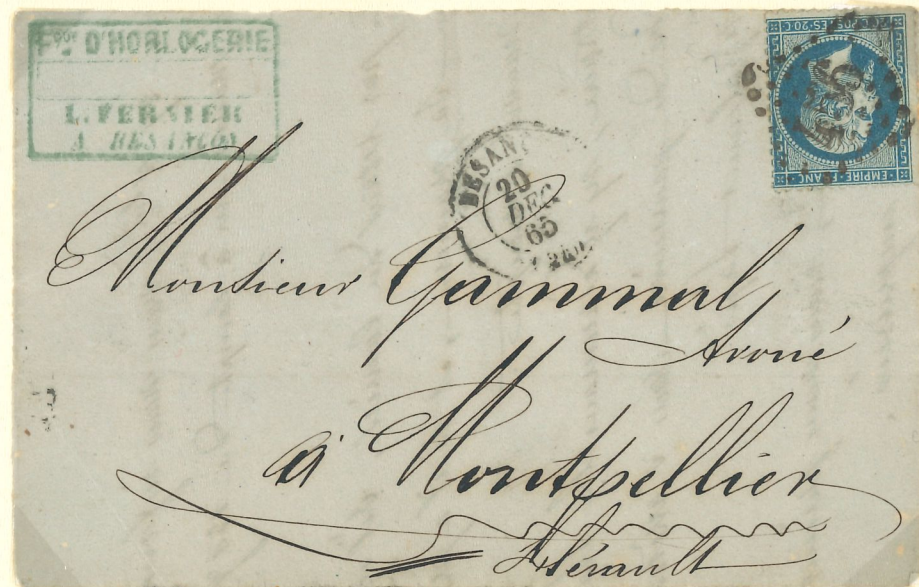 Fque D'HORLOGERIE
L. FERNIER
A BESANÇON
BESANÇ
20
DEC.
65
POSTES 20 C
EMPIRE FRANC
Monsieur Gammal
Avoué
à Montpellier
Hérault